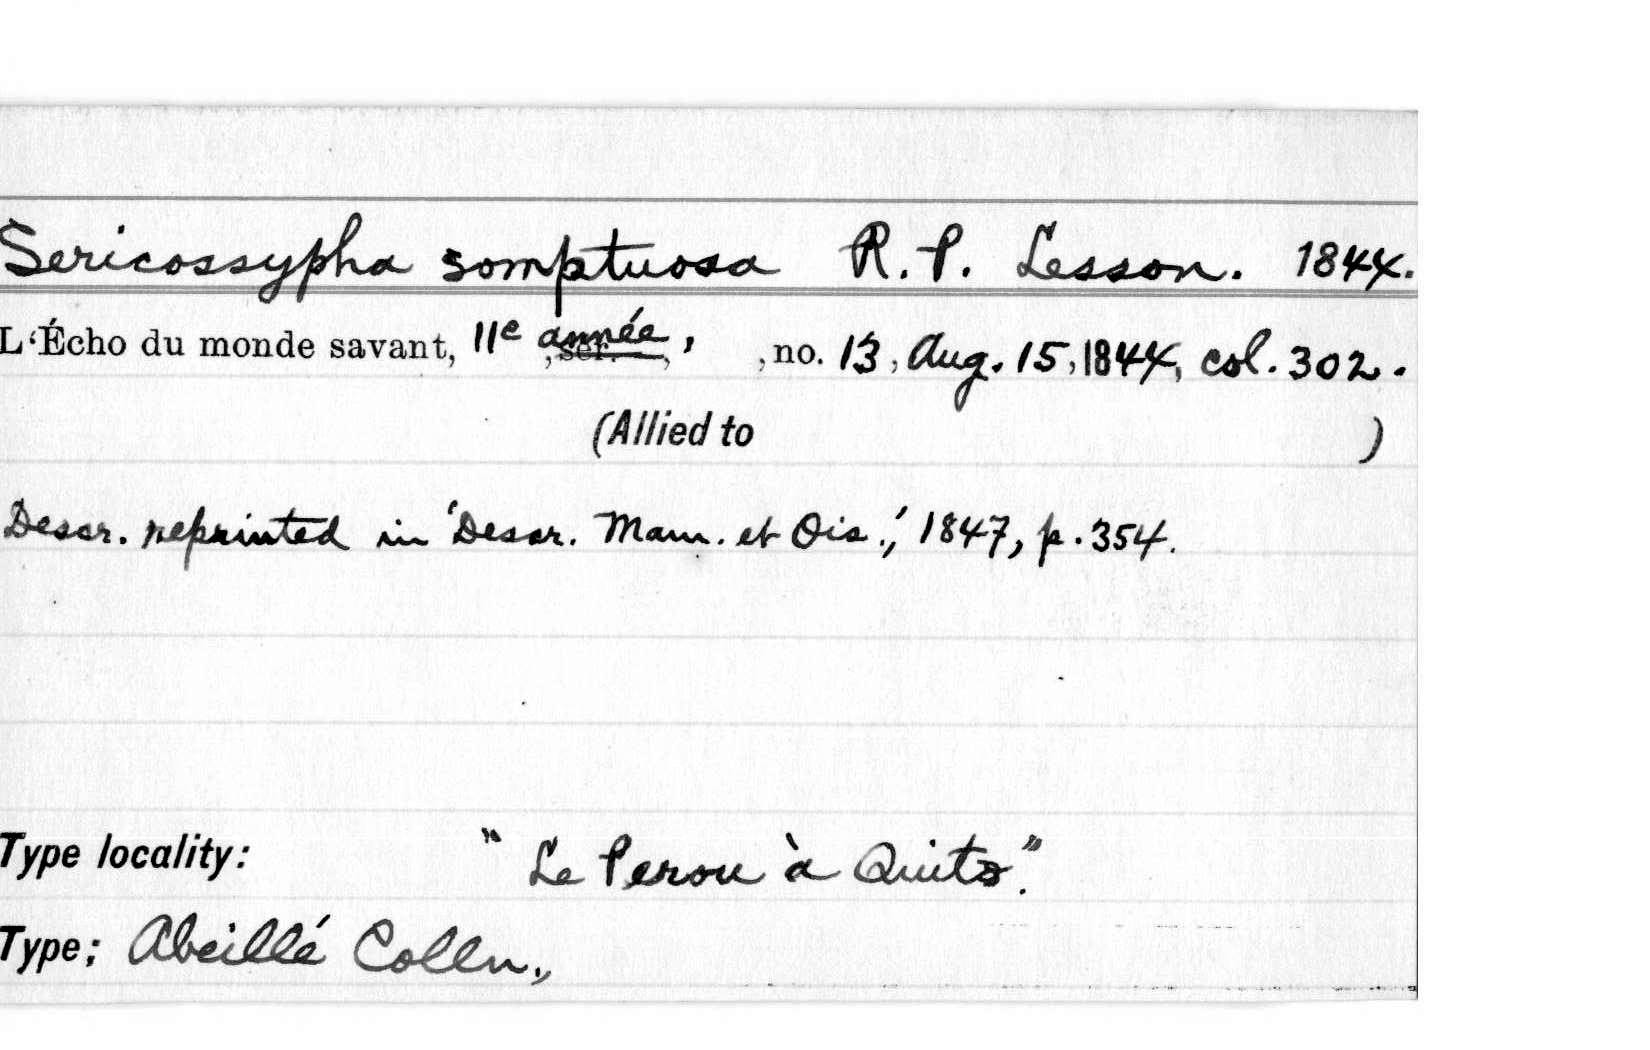 Sericossypha somptuosa R. P. Lesson. 1844.
L'Écho du monde savant, 11e année, , ser. , , no. 13, Aug. 15, 1844, col. 302.
(Allied to )
Descr. reprinted in 'Descr. Mam. et Ois.', 1847, p. 354.
Type locality: "Le Perou à Quito".
Type; Abeillé Colln.,